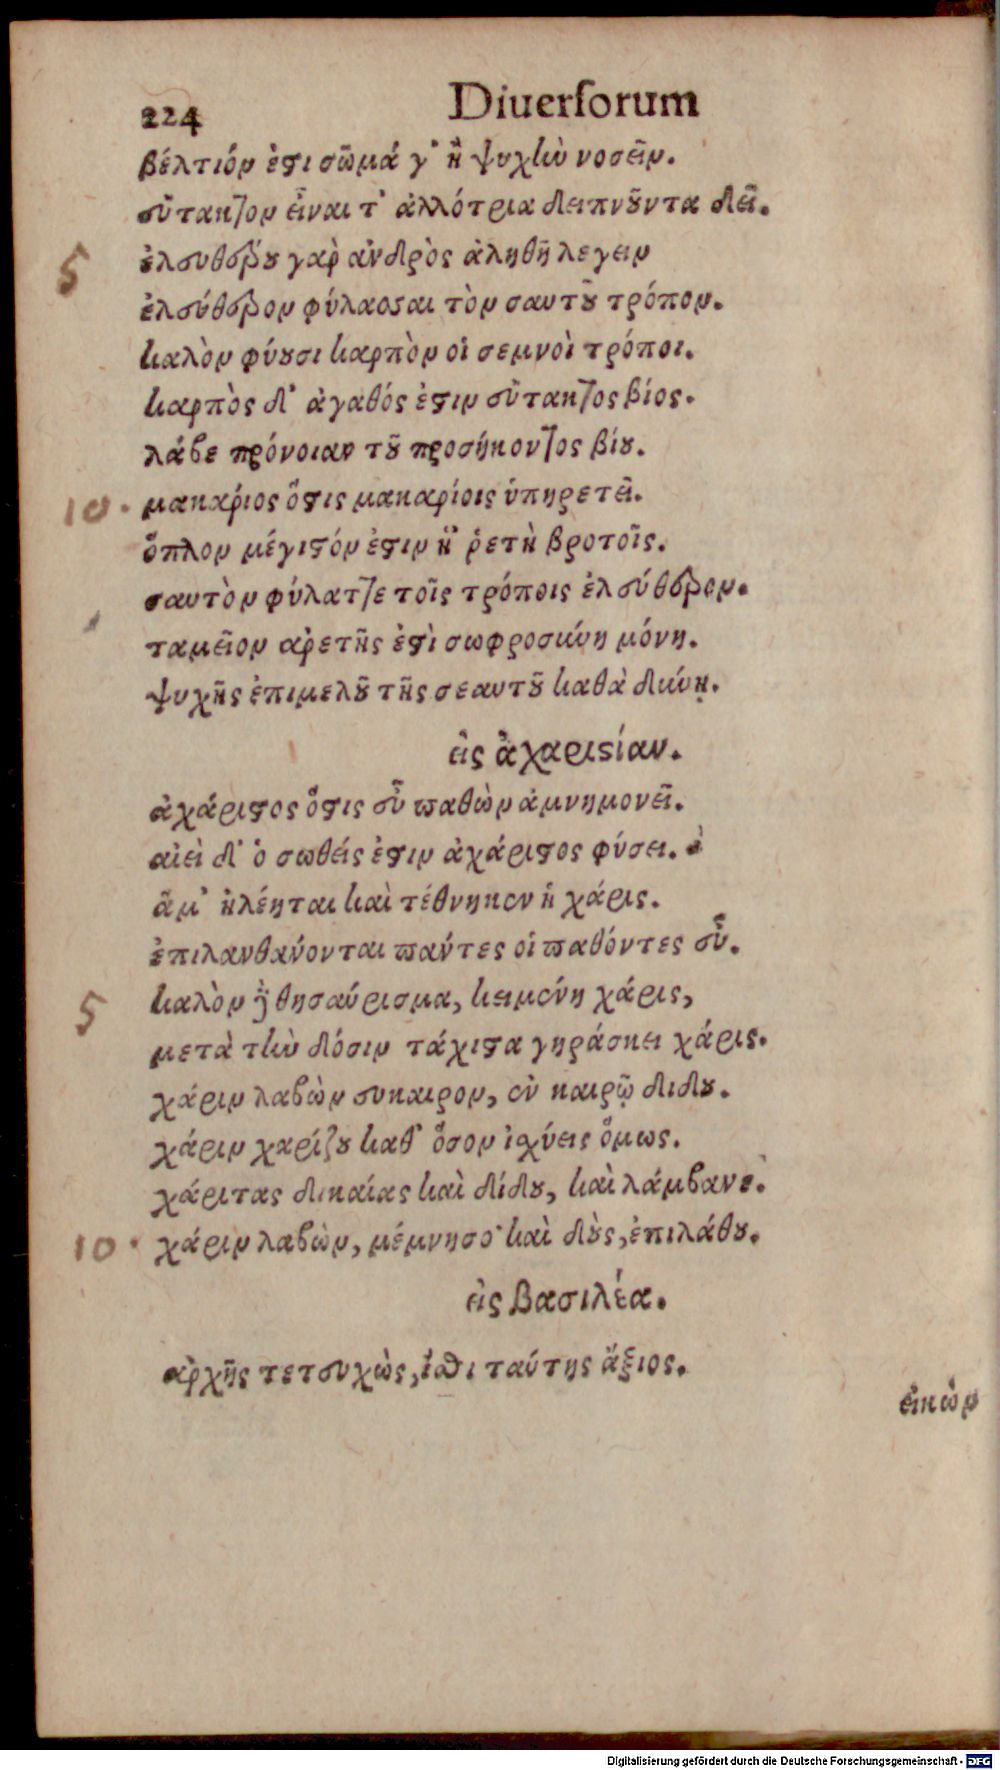 224 Diuersorum
βέλτιόν ἐστι σῶμά γ' ἢ ψυχὴν νοσεῖν.
εὔτακτον εἶναι τ' ἀλλότρια δειπνοῦντα δεῖ.
5 ἐλευθέρου γὰρ ἀνδρὸς ἀληθῆ λεγειν
ἐλεύθερον φύλασσαι τὸν σαυτοῦ τρόπον.
καλὸν φύουσι καρπὸν οἱ σεμνοὶ τρόποι.
καρπὸς δ' ἀγαθός ἐστιν εὔτακτος βίος.
λάβε πρόνοιαν τοῦ προσήκοντος βίου.
10. μακάριος ὅστις μακαρίοις ὑπηρετεῖ.
ὅπλον μέγιστόν ἐστιν ἡ ῥετὴ βροτοῖς.
σαυτὸν φύλαττε τοῖς τρόποις ἐλεύθερον.
ταμεῖον ἀρετῆς ἐστὶ σωφροσύνη μόνη.
ψυχῆς ἐπιμελοῦ τῆς σεαυτοῦ καθὰ δύνῃ.
εἰς ἀχαριστίαν.
ἀχάριστος ὅστις εὖ παθὼν ἀμνημονεῖ.
αἰεὶ δ' ὁ σωθείς ἐστιν ἀχάριστος φύσει.
ἅμ' ἠλέηται καὶ τέθνηκεν ἡ χάρις.
ἐπιλανθάνονται πάντες οἱ παθόντες εὖ.
5 καλὸν τὸ θησαύρισμα, κειμένη χάρις,
μετὰ τὴν δόσιν τάχιστα γηράσκει χάρις.
χάριν λαβὼν εὐκαιρον, ἐν καιρῷ διδου.
χάριν χαρίζου καθ' ὅσον ἰσχύεις ὅμως.
χάριτας δικαίας καὶ δίδου, καὶ λάμβανε.
10. χάριν λαβὼν, μέμνησο· καὶ δοὺς, ἐπιλάθου.
εἰς βασιλέα.
ἀρχῆς τετευχὼς, ἴσθι ταύτης ἄξιος.
εἰκὼν
Digitalisierung gefördert durch die Deutsche Forschungsgemeinschaft - DFG